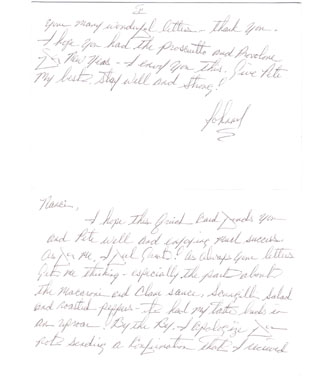 your many wonderful letters - thank you.
I hope you had the Prosciutto and Provolone
New Years - I envy you this. Give Pete
my best. Stay well and Strong!
Nancy,
I hope this Grind Card finds you
and Pete well and enjoying much success.
As for me, I feel Great! As always your letters
Got me thinking - especially the part about
the Macaroni and Clam sauce, Scungilli salad
and roasted peppers - had my taste buds in
an uproar! By the By, I apologize for
not sending a Confirmation that I received